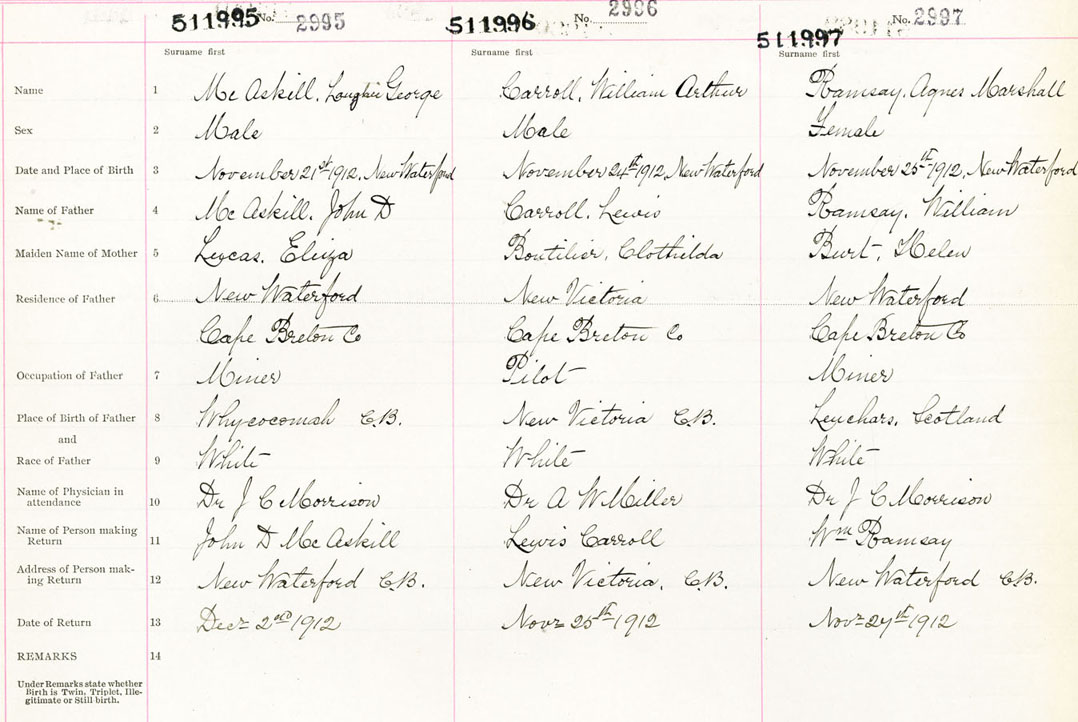 511995 No. 2995 511996 No. 2996 511997 No. 2997
Surname first Surname first Surname first
Name 1 Mc Askill, George Carroll, William Arthur Ramsay, Agnes Marshall
Sex 2 Male Male Female
Date and Place of Birth 3 November 21st 1912, New Waterford November 24th 1912, New Waterford November 25th 1912, New Waterford
Name of Father 4 Mc Askill, John D Carroll, Lewis Ramsay, William
Maiden Name of Mother 5 Lucas, Eliza Boutilier, Clothilda Burt, Helen
Residence of Father 6 New Waterford New Victoria New Waterford
Cape Breton Co Cape Breton Co Cape Breton Co
Occupation of Father 7 Miner Pilot Miner
Place of Birth of Father 8 Whycocomah C.B. New Victoria C.B. Leuchars, Scotland
and
Race of Father 9 White White White
Name of Physician in
attendance 10 Dr J C Morrison Dr A W Miller Dr J C Morrison
Name of Person making
Return 11 John D Mc Askill Lewis Carroll Wm Ramsay
Address of Person mak-
ing Return 12 New Waterford C.B. New Victoria, C.B. New Waterford C.B.
Date of Return 13 Decr 2nd 1912 Novr 25th 1912 Novr 27th 1912
REMARKS 14
Under Remarks state whether
Birth is Twin, Triplet, Ille-
gitimate or Still birth.